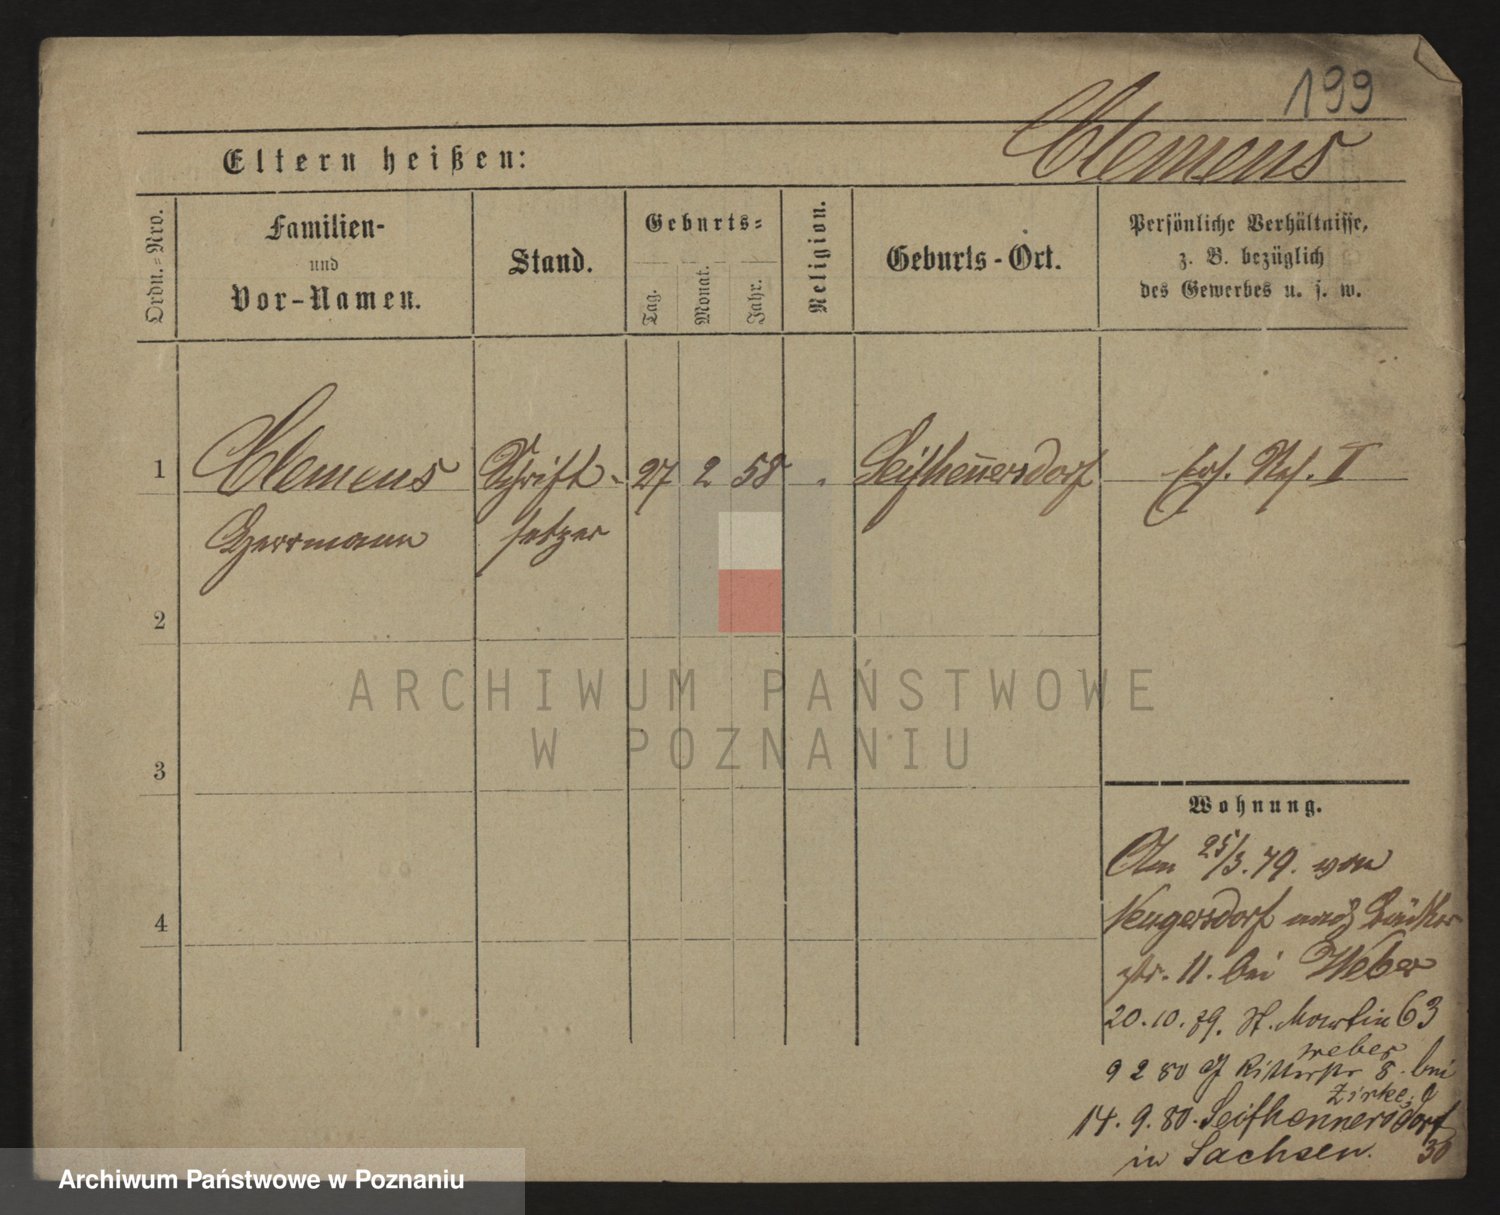 199
Eltern heißen: Clemens
Ordn.=Nro.
Familien-
und
Vor-Namen.
Stand.
Geburts=
Tag.
Monat.
Jahr.
Religion.
Geburts-Ort.
Persönliche Verhältnisse,
z. B. bezüglich
des Gewerbes u. s. w.
1 Clemens Schrift- 27 2 58 Seifhennersdorf Ers. Res. I
Herrmann setzer
2
ARCHIWUM PAŃSTWOWE
W POZNANIU
3
4
Wohnung.
Am 25/3.79. von
Neugersdorf nach
str. 11. bei Weber
20.10.79. St. Martin 63
Weber
9 2 80 Ritterstr 8. bei
Zirke
14. 9. 80. Seifhennersdorf
in Sachsen. 30
Archiwum Państwowe w Poznaniu